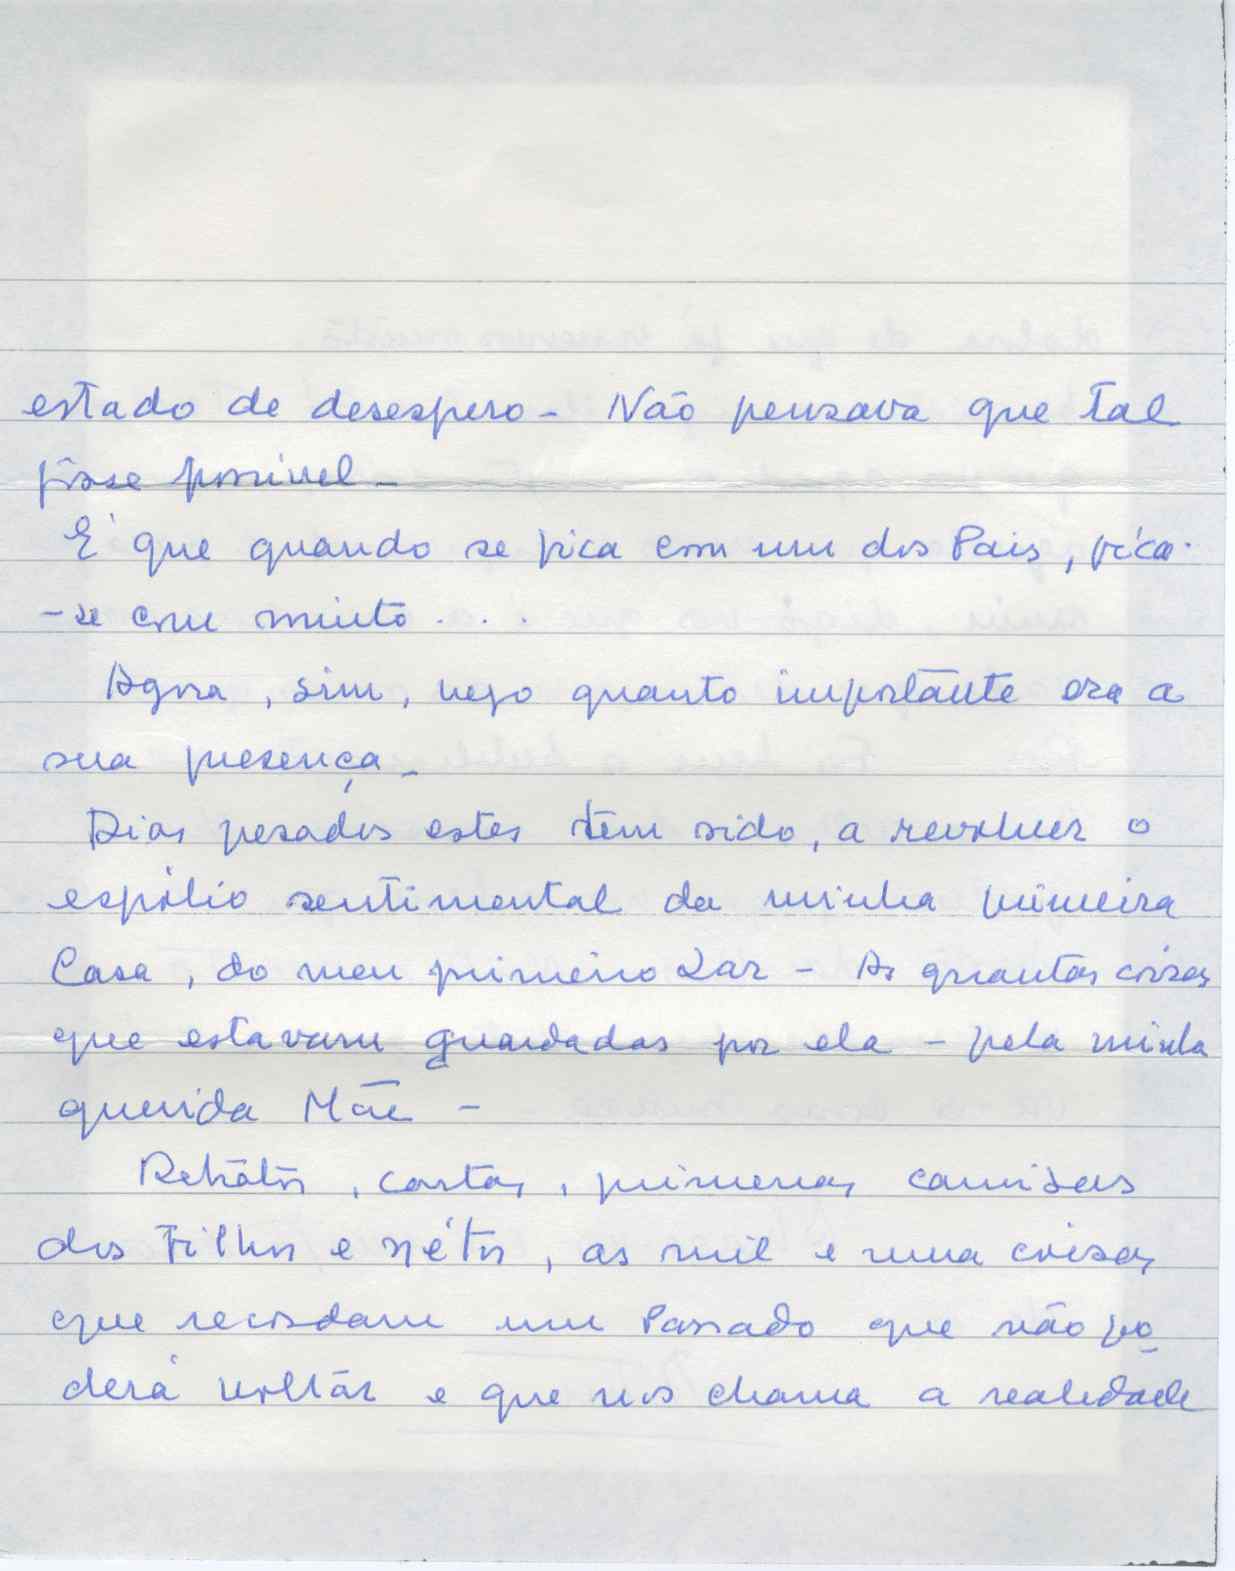 estado de desespero - Não pensava que tal
fôsse possivel -
É que quando se fica com um dos Pais, fica-
-se com muito . . .
Agora, sim, vejo quanto importante era a
sua presença -
Dias pesados estes têm sido, a revolver o
espólio sentimental da minha primeira
Casa, do meu primeiro Lar - As quantas coisas
que estavam guardadas por ela - pela minha
querida Mãe -
Retratos, cartas, primeiras camisas
dos Filhos e nétos, as mil e uma coisas
que recordam um Passado que não po
derá voltar e que nos chama a realidade